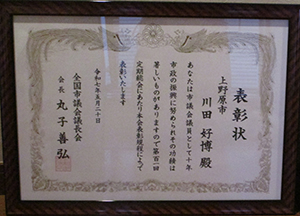 表彰状
上野原市
川田好博殿
あなたは市議会議員として十年
市政の振興に努められその功績は
著しいものがありますので第百一回
定期総会にあたり本会表彰規程によって
表彰いたします
令和七年五月二十日
全国市議会議長会
会長 丸子善弘